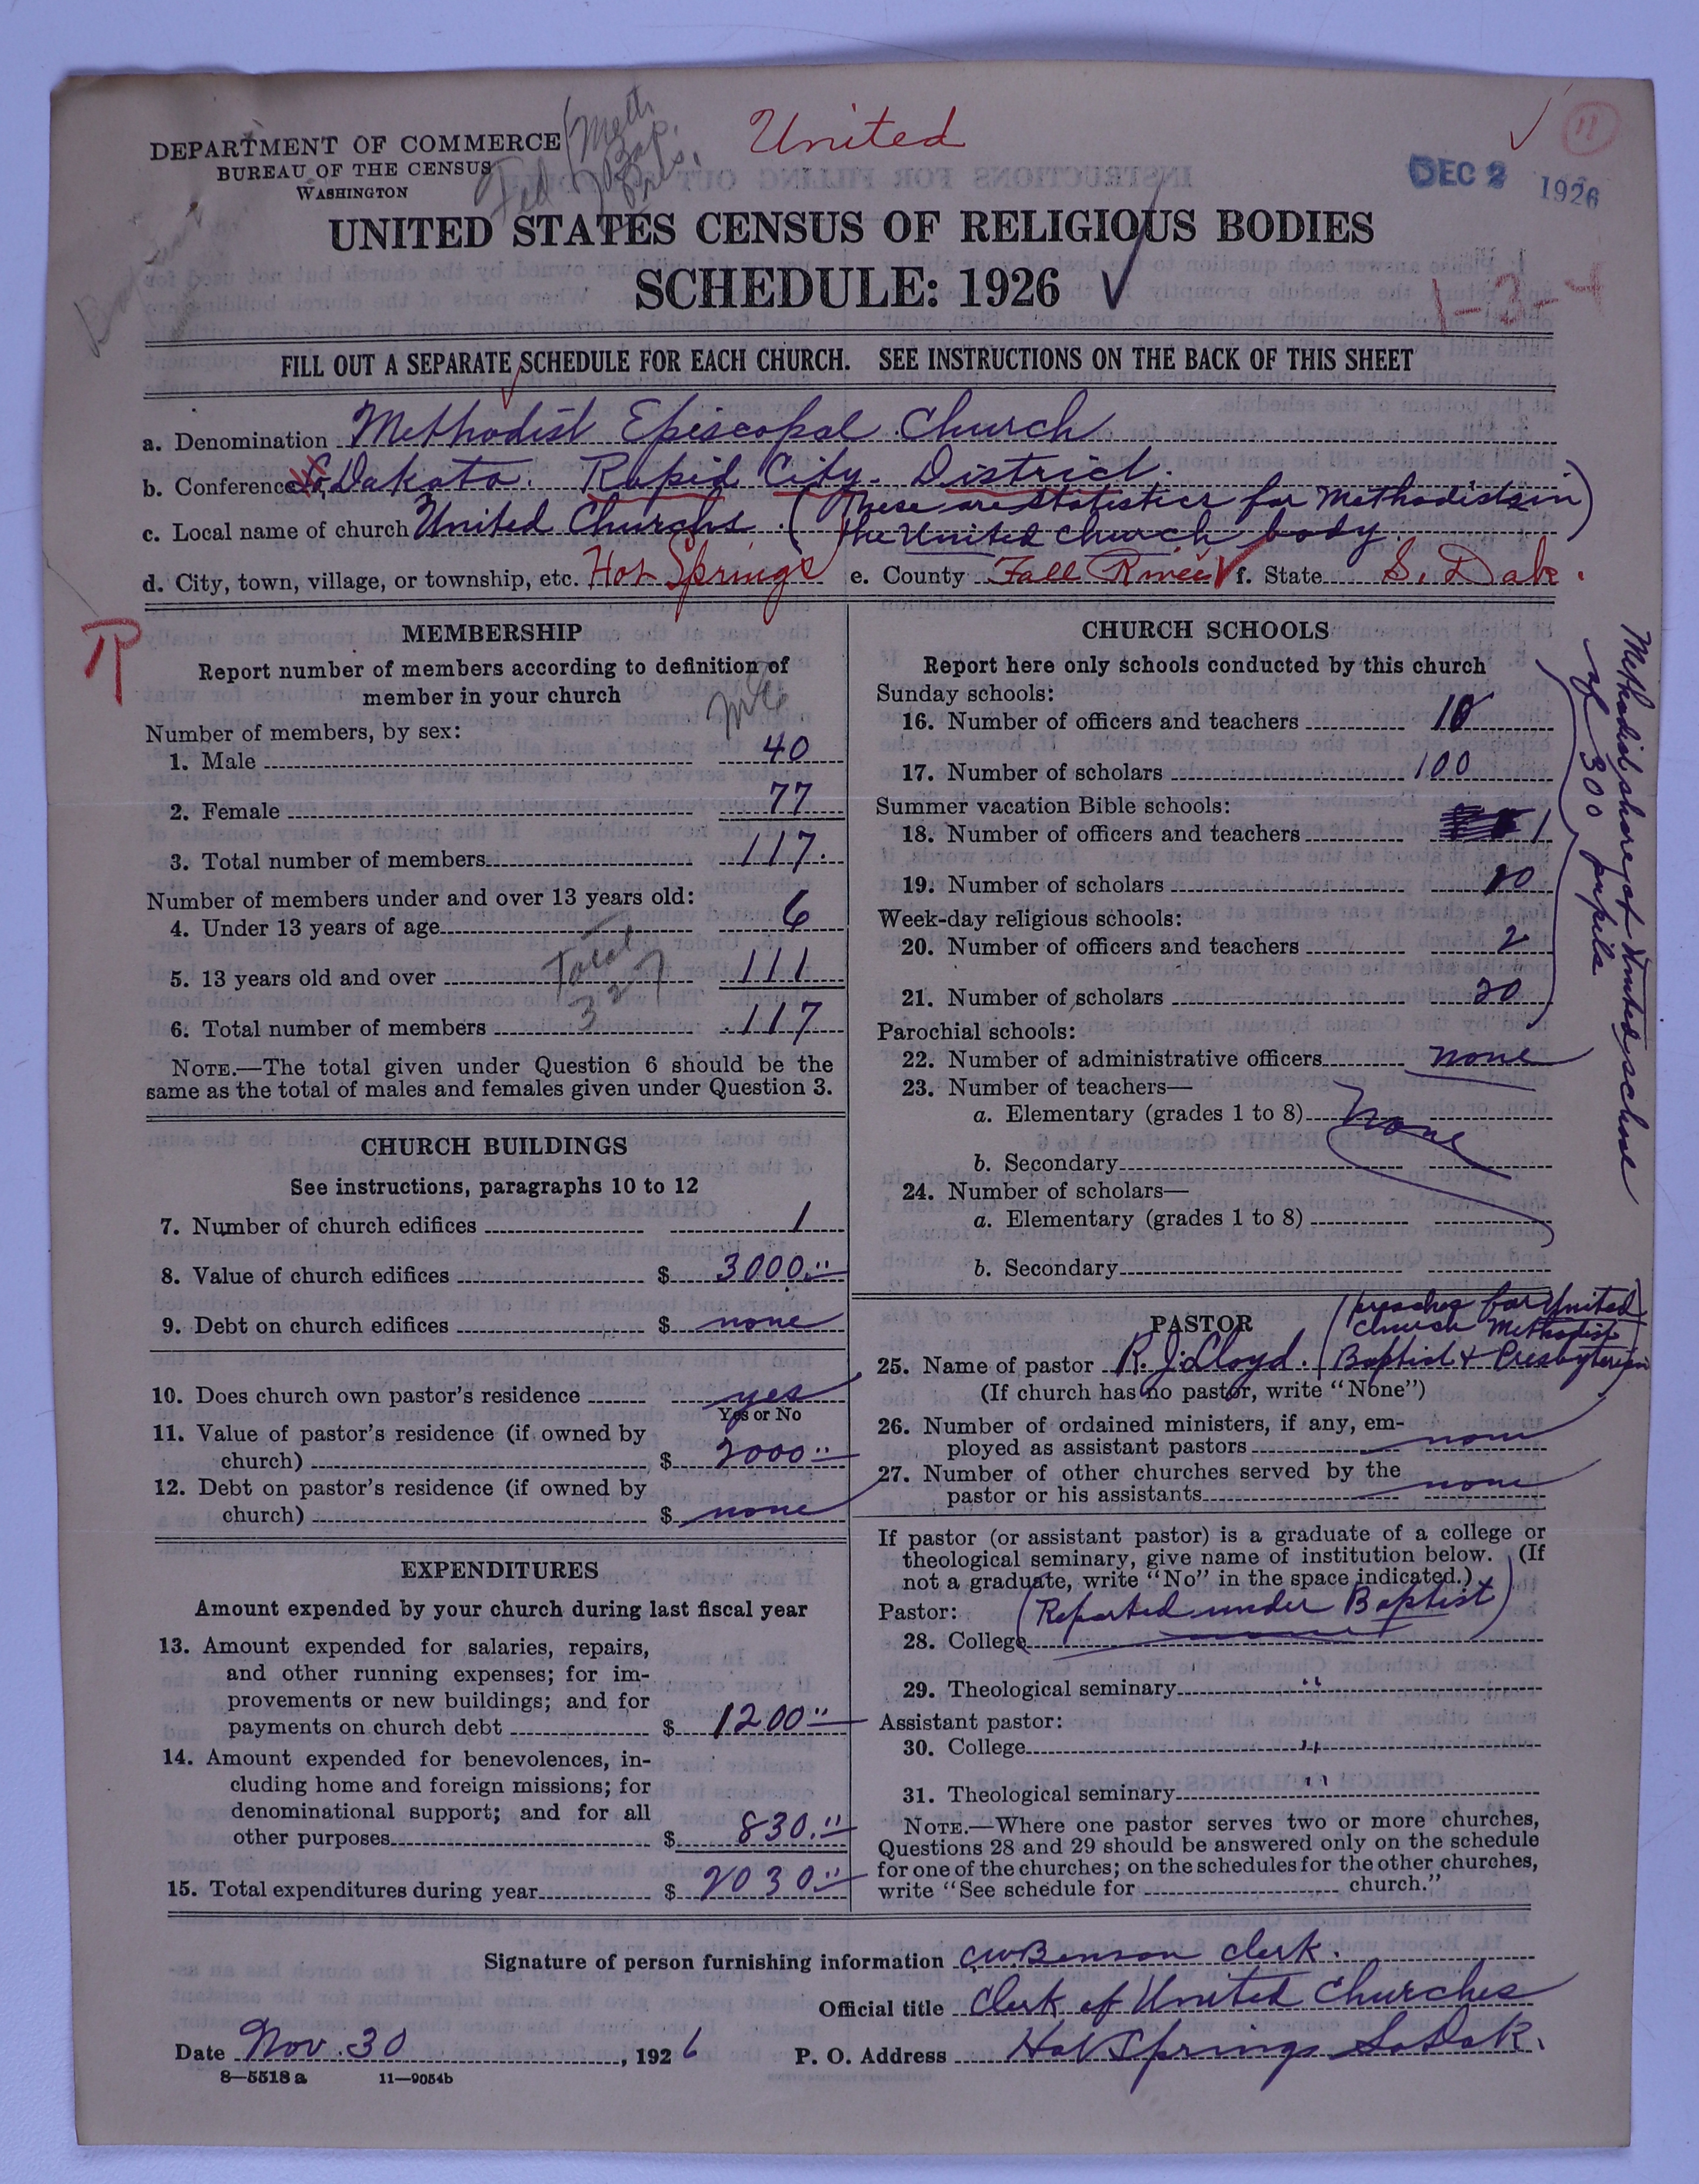 DEPARTMENT OF COMMERCE
BUREAU OF THE CENSUS
WASHINGTON
Fed
Meth
Bap.
Pres.
United
11
DEC 2 1926
UNITED STATES CENSUS OF RELIGIOUS BODIES
SCHEDULE: 1926
1-3-4
FILL OUT A SEPARATE SCHEDULE FOR EACH CHURCH. SEE INSTRUCTIONS ON THE BACK OF THIS SHEET
a. Denomination Methodist Episcopal Church
b. Conference So Dakota. Rapid City. District.
c. Local name of church United Churchs (These are statistics for Methodists in
the United church body)
d. City, town, village, or township, etc. Hot Springs e. County Fall River f. State S. Dak.
R
MEMBERSHIP
Report number of members according to definition of
member in your church
ME
Number of members, by sex:
1. Male 40
2. Female 77
3. Total number of members 117.
Number of members under and over 13 years old:
4. Under 13 years of age 6
5. 13 years old and over 111
Total
327
6. Total number of members 117
NOTE.—The total given under Question 6 should be the
same as the total of males and females given under Question 3.
CHURCH BUILDINGS
See instructions, paragraphs 10 to 12
7. Number of church edifices 1
8. Value of church edifices $ 3000.00
9. Debt on church edifices $ none
10. Does church own pastor's residence yes
Yes or No
11. Value of pastor's residence (if owned by
church) $ 2000.00
12. Debt on pastor's residence (if owned by
church) $ none
EXPENDITURES
Amount expended by your church during last fiscal year
13. Amount expended for salaries, repairs,
and other running expenses; for im-
provements or new buildings; and for
payments on church debt $ 1200.00
14. Amount expended for benevolences, in-
cluding home and foreign missions; for
denominational support; and for all
other purposes $ 830.00
15. Total expenditures during year $ 2030.00
CHURCH SCHOOLS
Report here only schools conducted by this church
Sunday schools:
16. Number of officers and teachers 10
17. Number of scholars 100
Summer vacation Bible schools:
18. Number of officers and teachers 1
19. Number of scholars 10
Week-day religious schools:
20. Number of officers and teachers 2
21. Number of scholars 20
Methodist share of United school
of 300 pupils
Parochial schools:
22. Number of administrative officers none
23. Number of teachers—
a. Elementary (grades 1 to 8) none
b. Secondary
24. Number of scholars—
a. Elementary (grades 1 to 8)
b. Secondary
PASTOR
(preaches for United
church Methodist
25. Name of pastor R. J. Lloyd. Baptist & Presbyterian)
(If church has no pastor, write "None")
26. Number of ordained ministers, if any, em-
ployed as assistant pastors none
27. Number of other churches served by the
pastor or his assistants none
If pastor (or assistant pastor) is a graduate of a college or
theological seminary, give name of institution below. (If
not a graduate, write "No" in the space indicated.)
Pastor: (Reported under Baptist)
28. College
29. Theological seminary "
Assistant pastor:
30. College "
31. Theological seminary "
NOTE.—Where one pastor serves two or more churches,
Questions 28 and 29 should be answered only on the schedule
for one of the churches; on the schedules for the other churches,
write "See schedule for church."
Signature of person furnishing information C W Benson Clerk.
Official title Clerk of United Churches
Date Nov. 30, 1926 P. O. Address Hot Springs So Dak.
8—5518 a 11—9054b